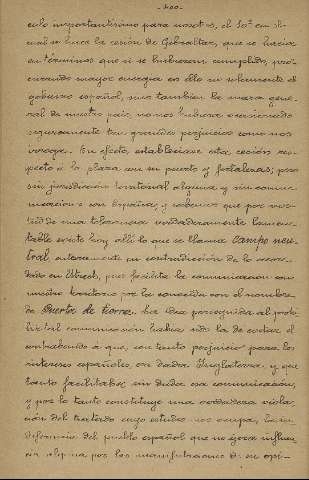 - 400 -
culo importantísimo para nosotros, el 10º en el
cual se hace la cesión de Gibraltar, que se hacía
en términos que si se hubieran cumplido, pro-
curando mayor energía en ello no solamente el
gobierno español, sino también la masa gene-
ral de nuestro país, no nos hubiera ocasionado
seguramente tan grandes perjuicios como nos
irroga. En efecto, establecíase esta cesión res-
pecto a la plaza con su puerto y fortalezas; pero
sin jurisdicción territorial alguna y sin comu-
nicación con España, y sabemos que por vir-
tud de una tolerancia verdaderamente lamen-
table existe hoy allí lo que se llama campo neu-
tral enteramente en contradicción de lo acor-
dado en Utrech, pues facilita la comunicación con
nuestro territorio por la conocida con el nombre
de Puerta de tierra. La idea perseguida al prohi-
bir tal comunicación había sido la de evitar el
contrabando a que, con tanto perjuicio para los
intereses españoles, es dada Inglaterra, y que
tanto facilitaba, sin duda, esa comunicación,
y por lo tanto constituye una verdadera viola-
ción del tratado cuyo estudio nos ocupa, la in-
diferencia del pueblo español que no ejerce influen-
cia alguna por las manifestaciones de su opi-